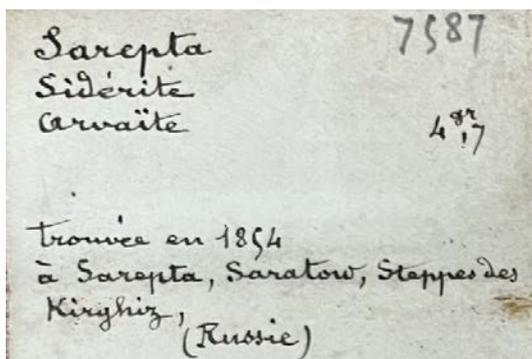 Sarepta 7587
Sidérite
Arvaïte 4gr,7
trouvée en 1854
à Sarepta, Saratow, Steppes des
Kirghiz,
(Russie)